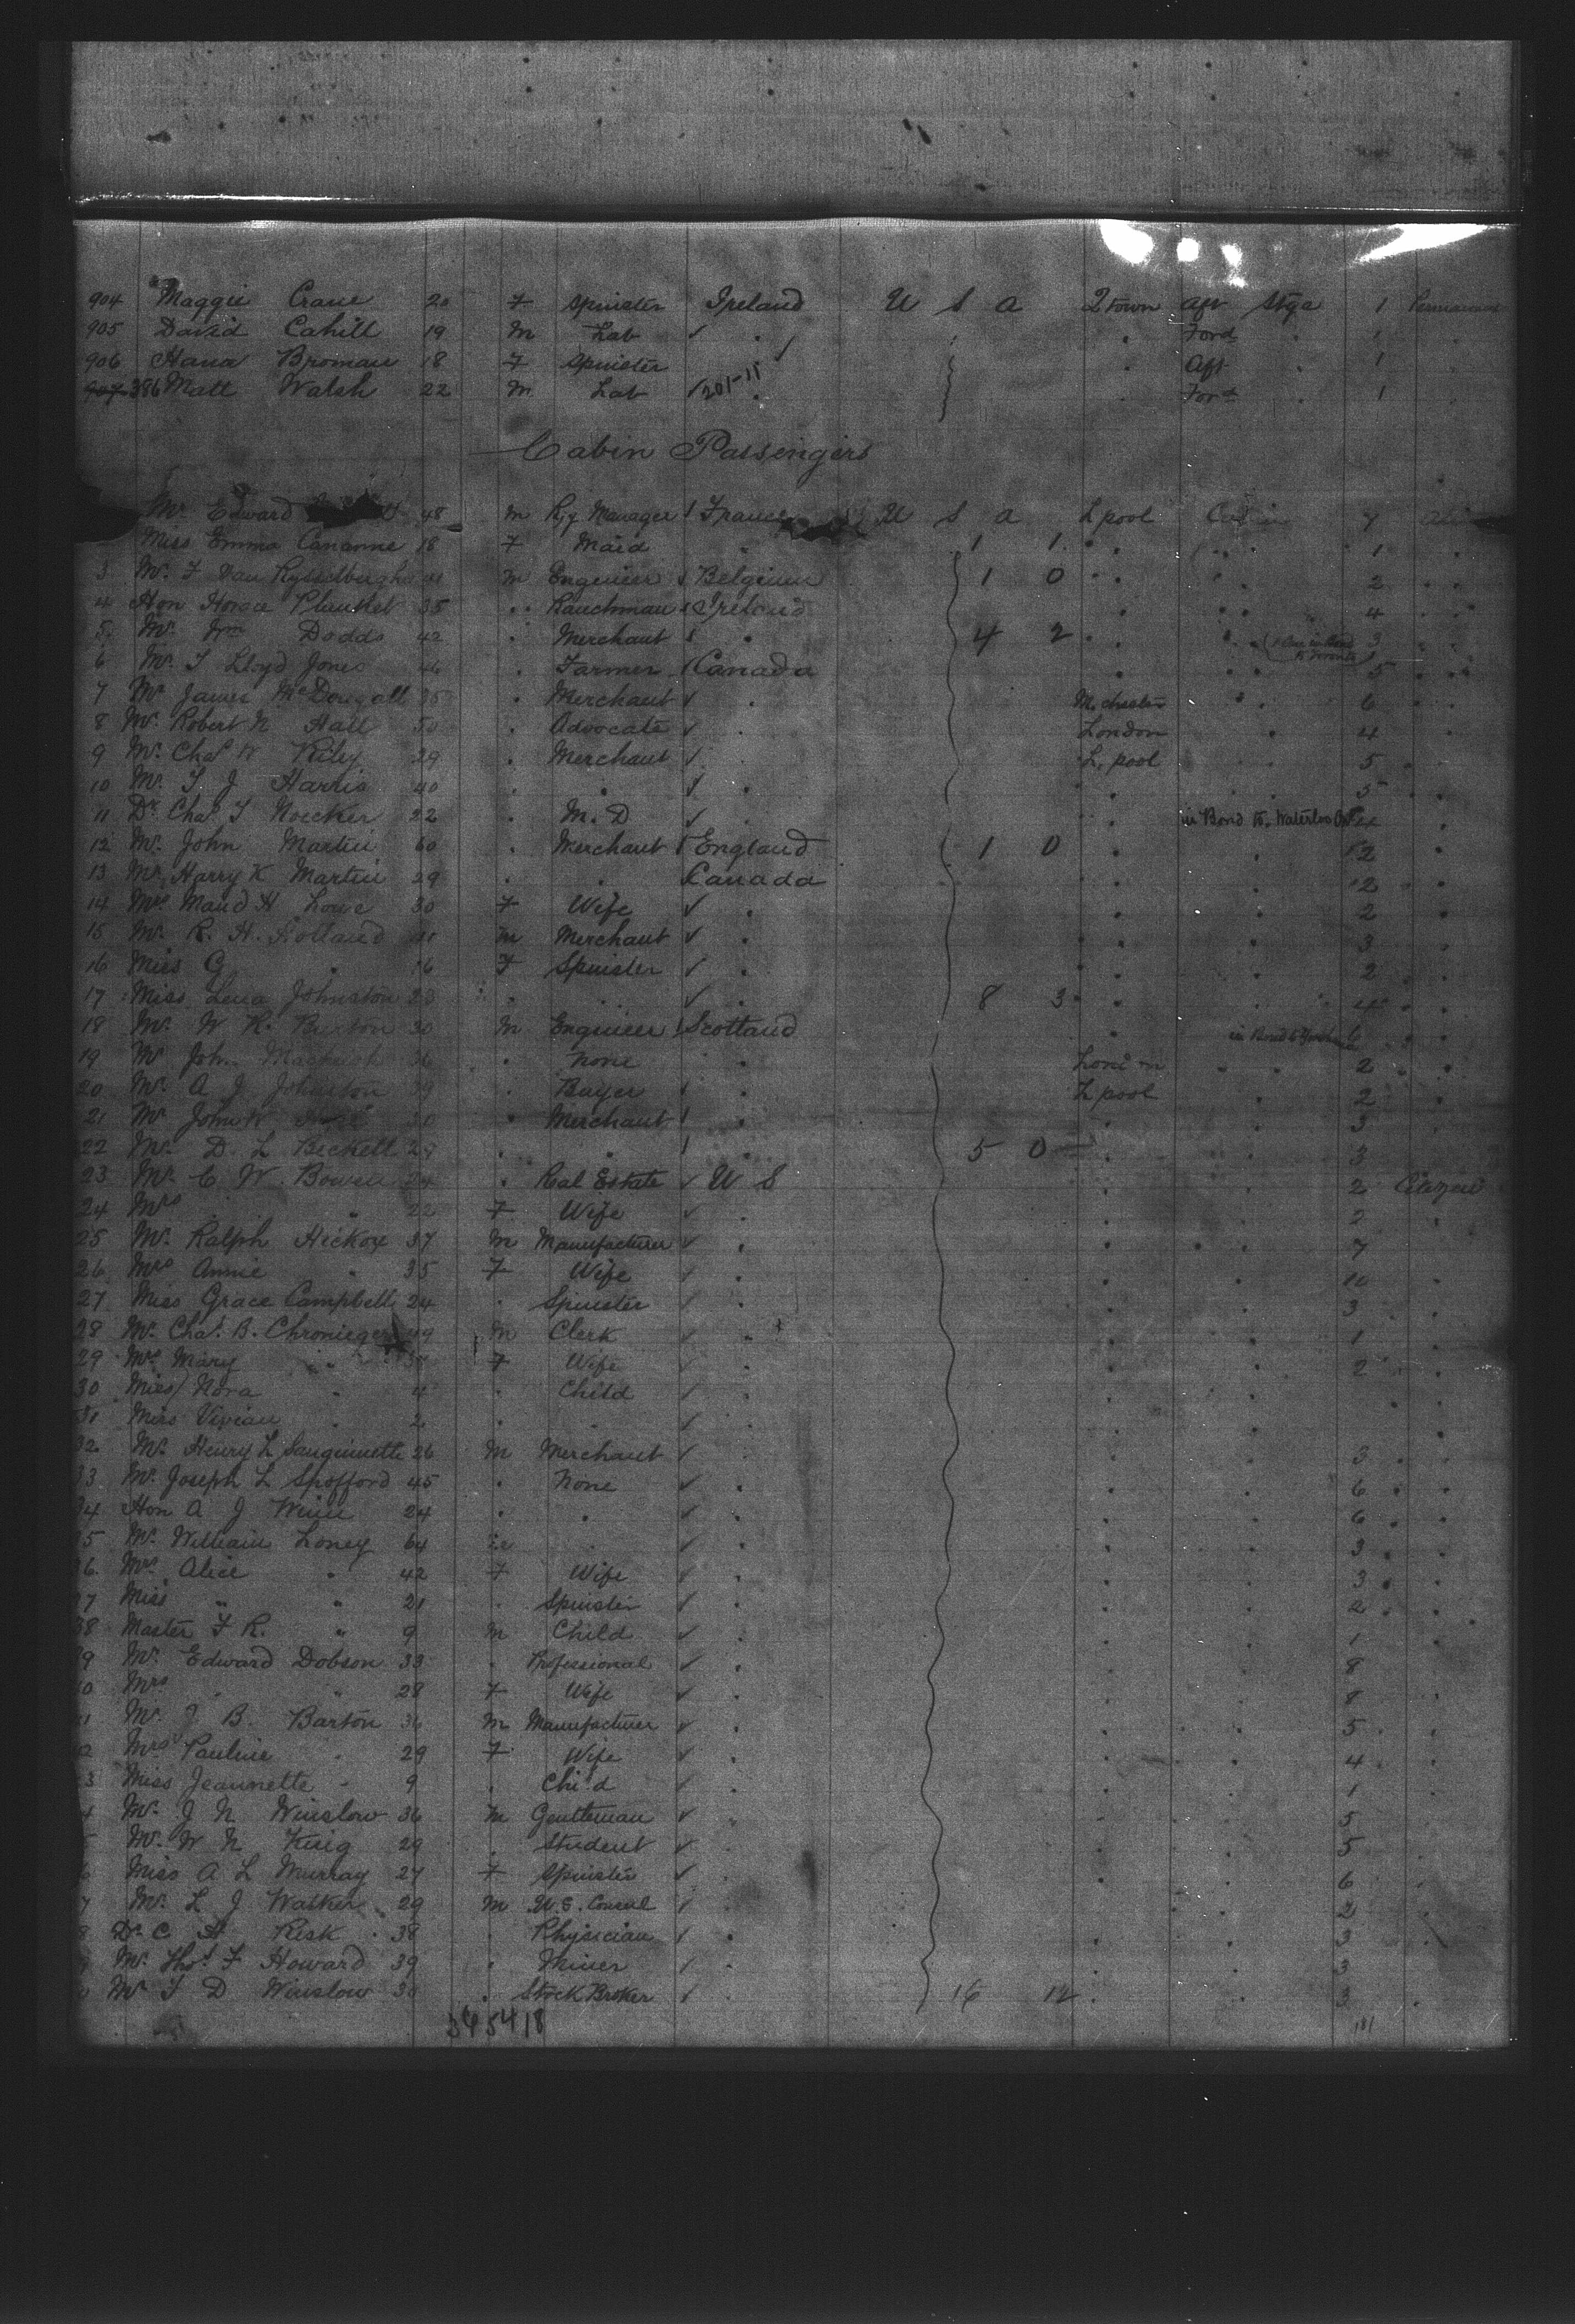 904 Maggie Crane 20 F Spinster Ireland U S A Q town Aft Stge 1 Permanent
905 David Cahill 19 M Lab ✓ . . Ford . 1 .
906 Hana Broman 18 F Spinster . Aft . 1 .
907 386 Matt Walsh 22 M Lab ✓ 201-11 . Ford . 1 .
Cabin Passengers
Mr Edward 48 M Manager France U S A L pool Cabin 7
Miss Emma 18 F Maid . 1 1 . . 1 .
3 Mr F Van Rysselberghe 41 M Engineer Belgium 1 0 . . 2 .
4 Hon Horace Plunket 35 . Ranchman Ireland . . 4 .
5 Mr Wm Dodds 42 . Merchant . 4 2 . . 3 .
6 Mr T Lloyd Jones 46 . Farmer Canada . . 5 .
7 Mr James McDougall 35 . Merchant ✓ . M. chester . 6 .
8 Mr Robert N Hall 50 . Advocate ✓ . London . 4 .
9 Mr Chas W Riley 29 . Merchant ✓ . L. pool . 5 .
10 Mr T J Harris 40 . . ✓ . . . 5 .
11 Dr Chas T Noecker 22 . M. D ✓ . . in Bond to Waterloo
12 Mr John Martin 60 . Merchant England 1 0 . . 2 .
13 Mr Harry K Martin 29 . . Canada . . 2 .
14 Mrs Maud H Lowe 30 F Wife ✓ . . . 2 .
15 Mr R. H. Holland 41 M Merchant ✓ . . . 3 .
16 Miss G " 16 F Spinster ✓ . . . 2 .
17 Miss Lena Johnston 23 . . ✓ . 8 3 . . 4 .
18 Mr W R. Buxton 30 M Engineer Scotland . in Bond to 6 .
19 Mr John 36 . None . London . 2 .
20 Mr A J Johnston 39 . Buyer . L pool . 2 .
21 Mr John W 30 . Merchant . . . 3
22 Mr D. L Beckett 27 . . . 5 0 . 3
23 Mr C. W. Bowen 24 . Real Estate ✓ U S . . 2 Citizen
24 Mrs . " 22 F Wife ✓ . . . 2 .
25 Mr Ralph Hickox 37 M Manufacturer ✓ . . . 7
26 Mrs Annie " 35 F Wife ✓ . . . 10 .
27 Miss Grace Campbell 24 . Spinster ✓ . . . 3 .
28 Mr Chas. B. 49 M Clerk ✓ . . . 1 .
29 Mrs Mary " F Wife ✓ . . . 2 .
30 Miss Nora " 4 . Child ✓ . . .
31 Miss Vivian " 2 . . ✓ . . .
32 Mr Henry L Sanguinette 26 M Merchant ✓ . . . 3 .
33 Mr Joseph L Spofford 45 . None ✓ . . . 6 .
34 Hon A J 24 . . ✓ . . . 6 .
35 Mr William Loney 64 . ✓ . . . 3 .
36. Mrs Alice " 42 F Wife ✓ . . . 3 .
37 Miss " " 21 . Spinster ✓ . . . 2 .
38 Master F R. " 9 M Child ✓ . . . 1 .
39 Mr. Edward Dobson 33 . Professional ✓ . . . 8
40 Mrs " " 28 F Wife ✓ . . . 8 .
41 Mr. J B. Barton 36 M Manufacturer ✓ . . . 5 .
42 Mrs Pauline " 29 F Wife ✓ . . . 4 .
43 Miss Jeannette " 9 . Child ✓ . . . 1 .
44 Mr. J N Winslow 36 M Gentleman ✓ . . . 5 .
45 Mr. W N King 29 . Student ✓ . . . 5 .
46 Miss A L Murray 27 F Spinster ✓ . . . 6 .
47 Mr. L J Walker 29 M U.S. Consul ✓ . . . 2 .
48 Dr C H Risk 38 . Physician ✓ . . . 3 .
49 Mr. Thos. F Howard 39 . Miner ✓ . . . 3
50 Mr T D Winslow . Stock Broker ✓ 16 12 . . 3 .
181